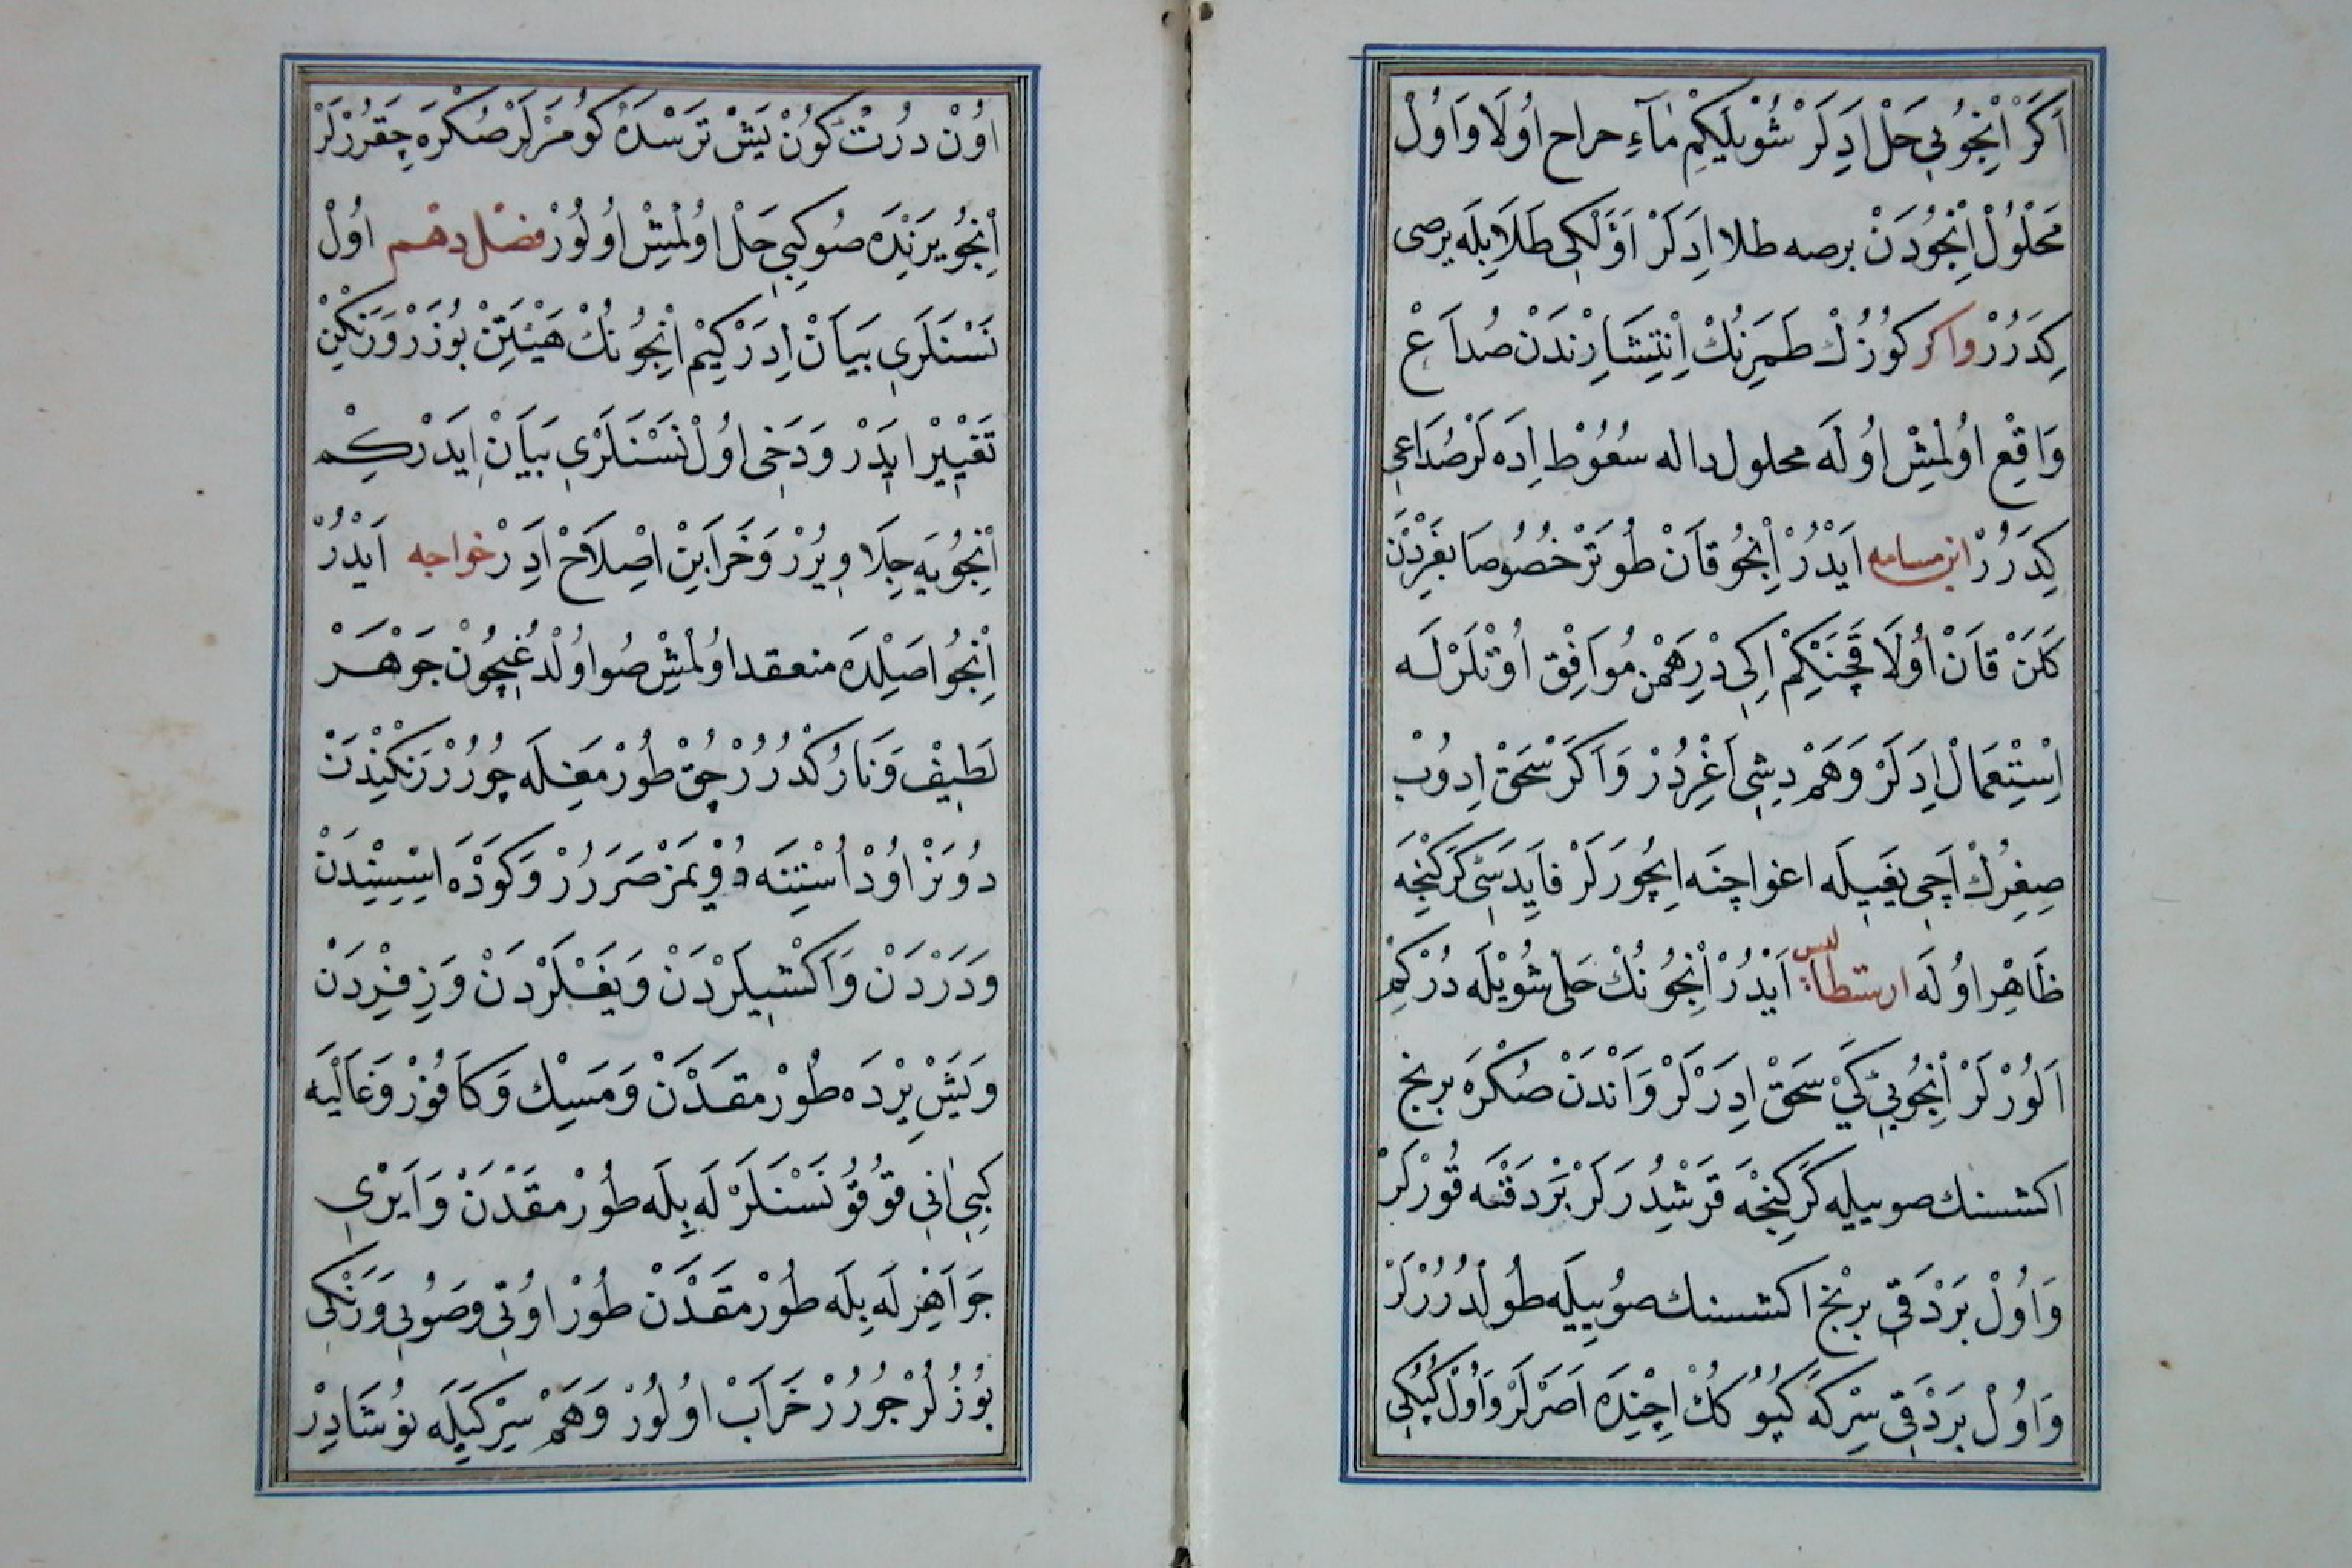 اَكَرْ اِنْجُويِ حَلْ اِدَلَرْ شُوْيلَكِمْ مٰآءِ حراح اُولَا وَاُولْ
مَحْلُولْ اِنْجُودَنْ برصه طلا اِدَلَرْ اَوَّلْكِى طَلَايِلَه برصى
كِدَرُرْ واكر كُوزُكْ طَمَرِنُكْ اِنْتِشَارِنْدَنْ صُدَاعْ
وَاقِعْ اُولْمِشْ اُولَه محلول داله سُعُوْط اِدَه لَرْ صُدَاعِى
كِدَرُرْ ابن مسامه اَيْدُرْ اِنْجُو قَانْ طُوتَرْ خُصُوصَا بَغِرْدَنْ
كَلَنْ قَانْ اُولَا قَچَنْكِمْ اِكِى دْرِهَمْنِ مُوَافِقْ اُوتْلَرْلَه
اِسْتِعْمَالْ اِدَلَرْ وَهَمْ دِشِى اَغْرِدُرْ وَاَكَرْ سَحَقْ اِدُوبْ
صِغِرُكْ اَچِى يَغِيلَه اغو اچنه اِيچُورَلَرْ فَايِدَسِّى كَرَكِنْجَه
ظَاهِرْ اُولَه ارسطاليس اَيْدُرْ اِنْجُونُكْ حَلِّى شُويْلَه دُرْكِمْ
اَلُورْلَرْ اِنْجُويِى كَىْ سَحَقْ اِدَرْلَرْ وَاَنْدَنْ صُكْرَه برنج
اكشسنك صوييله كَرَكِنْجَه قَرِشْدُرَلَرْ بَرْدَقْنَه قُورْلَرْ
وَاُولْ بَرْدَقِى برِنْج اكشسنك صُويِيلَه طُولْدُرُرْلَرْ
وَاُولْ بَرْدَقِى سِرْكَه كُپُوكُكْ اِچِنْدَه اَصَرْلَرْ وَاُولْ كُپُكِى
اُوْن دُرْتْ كُونْ يَشْ تَرَسْدَه كُومَرْلَرْ صُكْرَه چِقَرُرْلَرْ
اِنْجُو يَرِنْدَه صُو كِبِى حَلْ اُولْمِشْ اُولُورْ فصل دهم اُولْ
نَسْنَلَرِى بَيَانْ اِدَرْ كِيمْ اِنْجُونُكْ هَيْئَتِنْ بُوزَرْ وَرَنْكِنْ
تَغْيِيرْ اِيدَرْ وَدَخِى اُولْ نَسْنَلَرِى بَيَانْ اِيدَرْ كِمْ
اِنْجُويَه جِلَا وِيرُرْ وَخَرَابِنْ اِصْلَاحْ اِدَرْ خواجه اَيْدُرْ
اِنْجُو اصِلْدَه منعقد اُولْمِشْ صُو اُولْدُغِيچُونْ جَوْهَرْ
لَطِيفْ وَنَازُكْدُرُرْ چُقْ طُورْمَغِلَه چُورُرْ رَنْكِنْدَنْ
دُونَرْ اُودْ اُسْتِنَه دُويْمَزْ ضَرَرُرْ وَكَوْدَه اسِّيسِنْدَنْ
وَدَرْدَنْ وَاَكْشِيلَرْدَنْ وَيَغْلَرْدَنْ وَزِفِرْدَنْ
وَيَشْ يِرْدَه طُورْمَقْدَنْ وَمَسِكْ وَكَافُورْ وَغَالْيَه
كِبِى اٰنِى قُوقُو نَسْنَلَرْ لَه بِلَه طُورْمَقْدَنْ وَاَيْرِى
جَوَاهِرْلَه بِلَه طُورْمَقْدَنْ طُورْ اُوتِى وصُويِى وَرَنْكِى
بُوزُلُرْ چُورُرْ خَرَابْ اُولُورْ وَهَمْ سِرْكَيِلَه نُوشَادِرْ